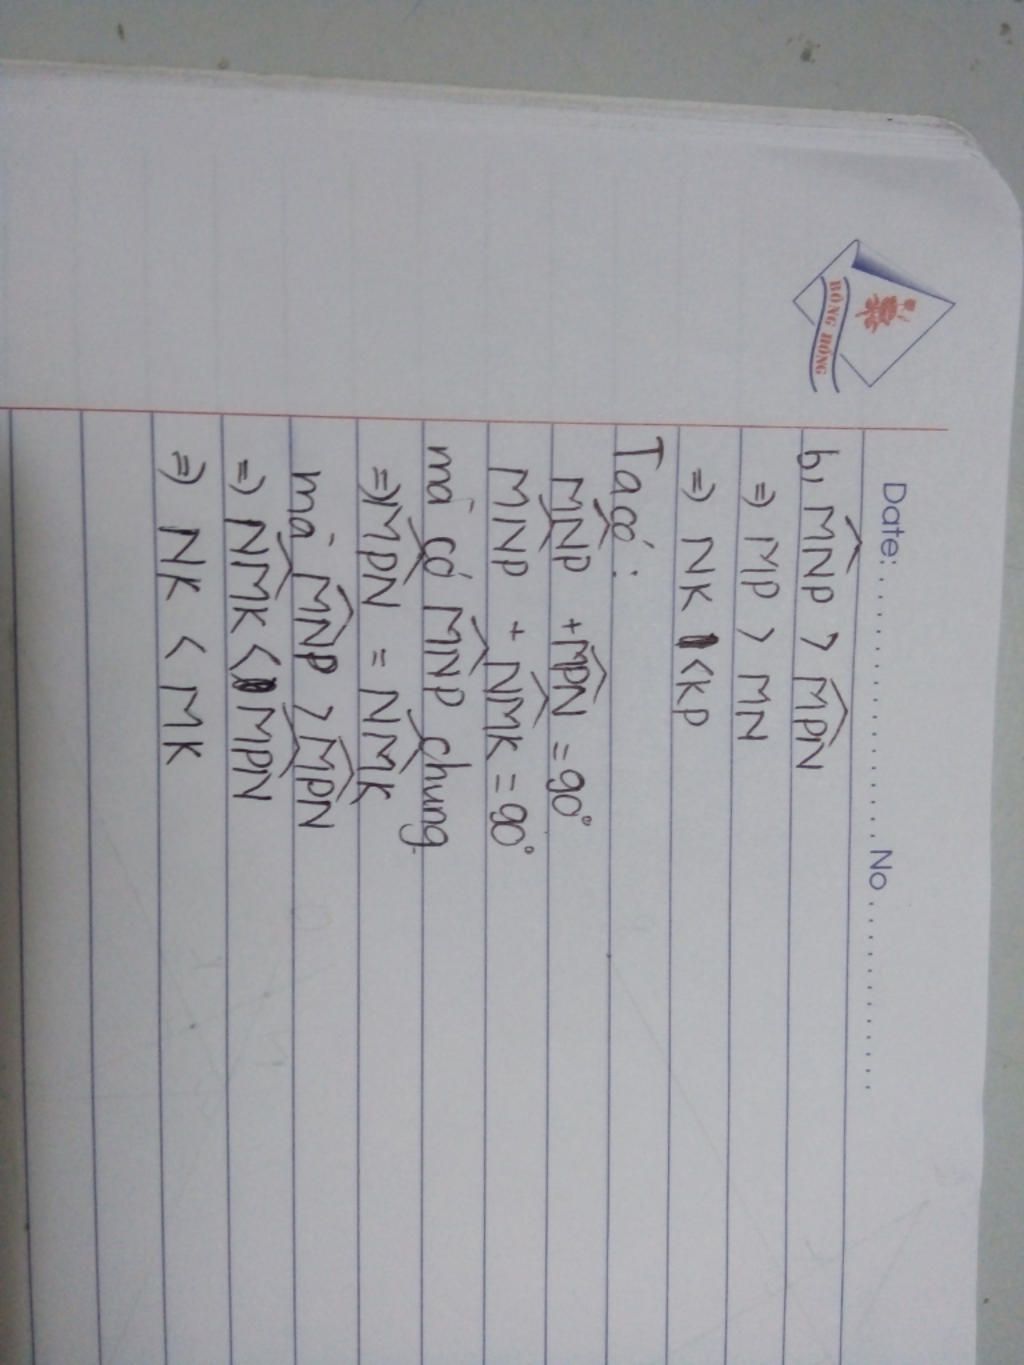 BÔNG HỒNG
Date: .......................... No ....................
b, M̂NP > M̂PN
=) MP > MN
=) NK < KP
Ta có :
M̂NP + M̂PN = 90°
M̂NP + N̂MK = 90°
mà có M̂NP chung
=) M̂PN = N̂MK
mà M̂NP > M̂PN
=) N̂MK < M̂PN
=) NK < MK